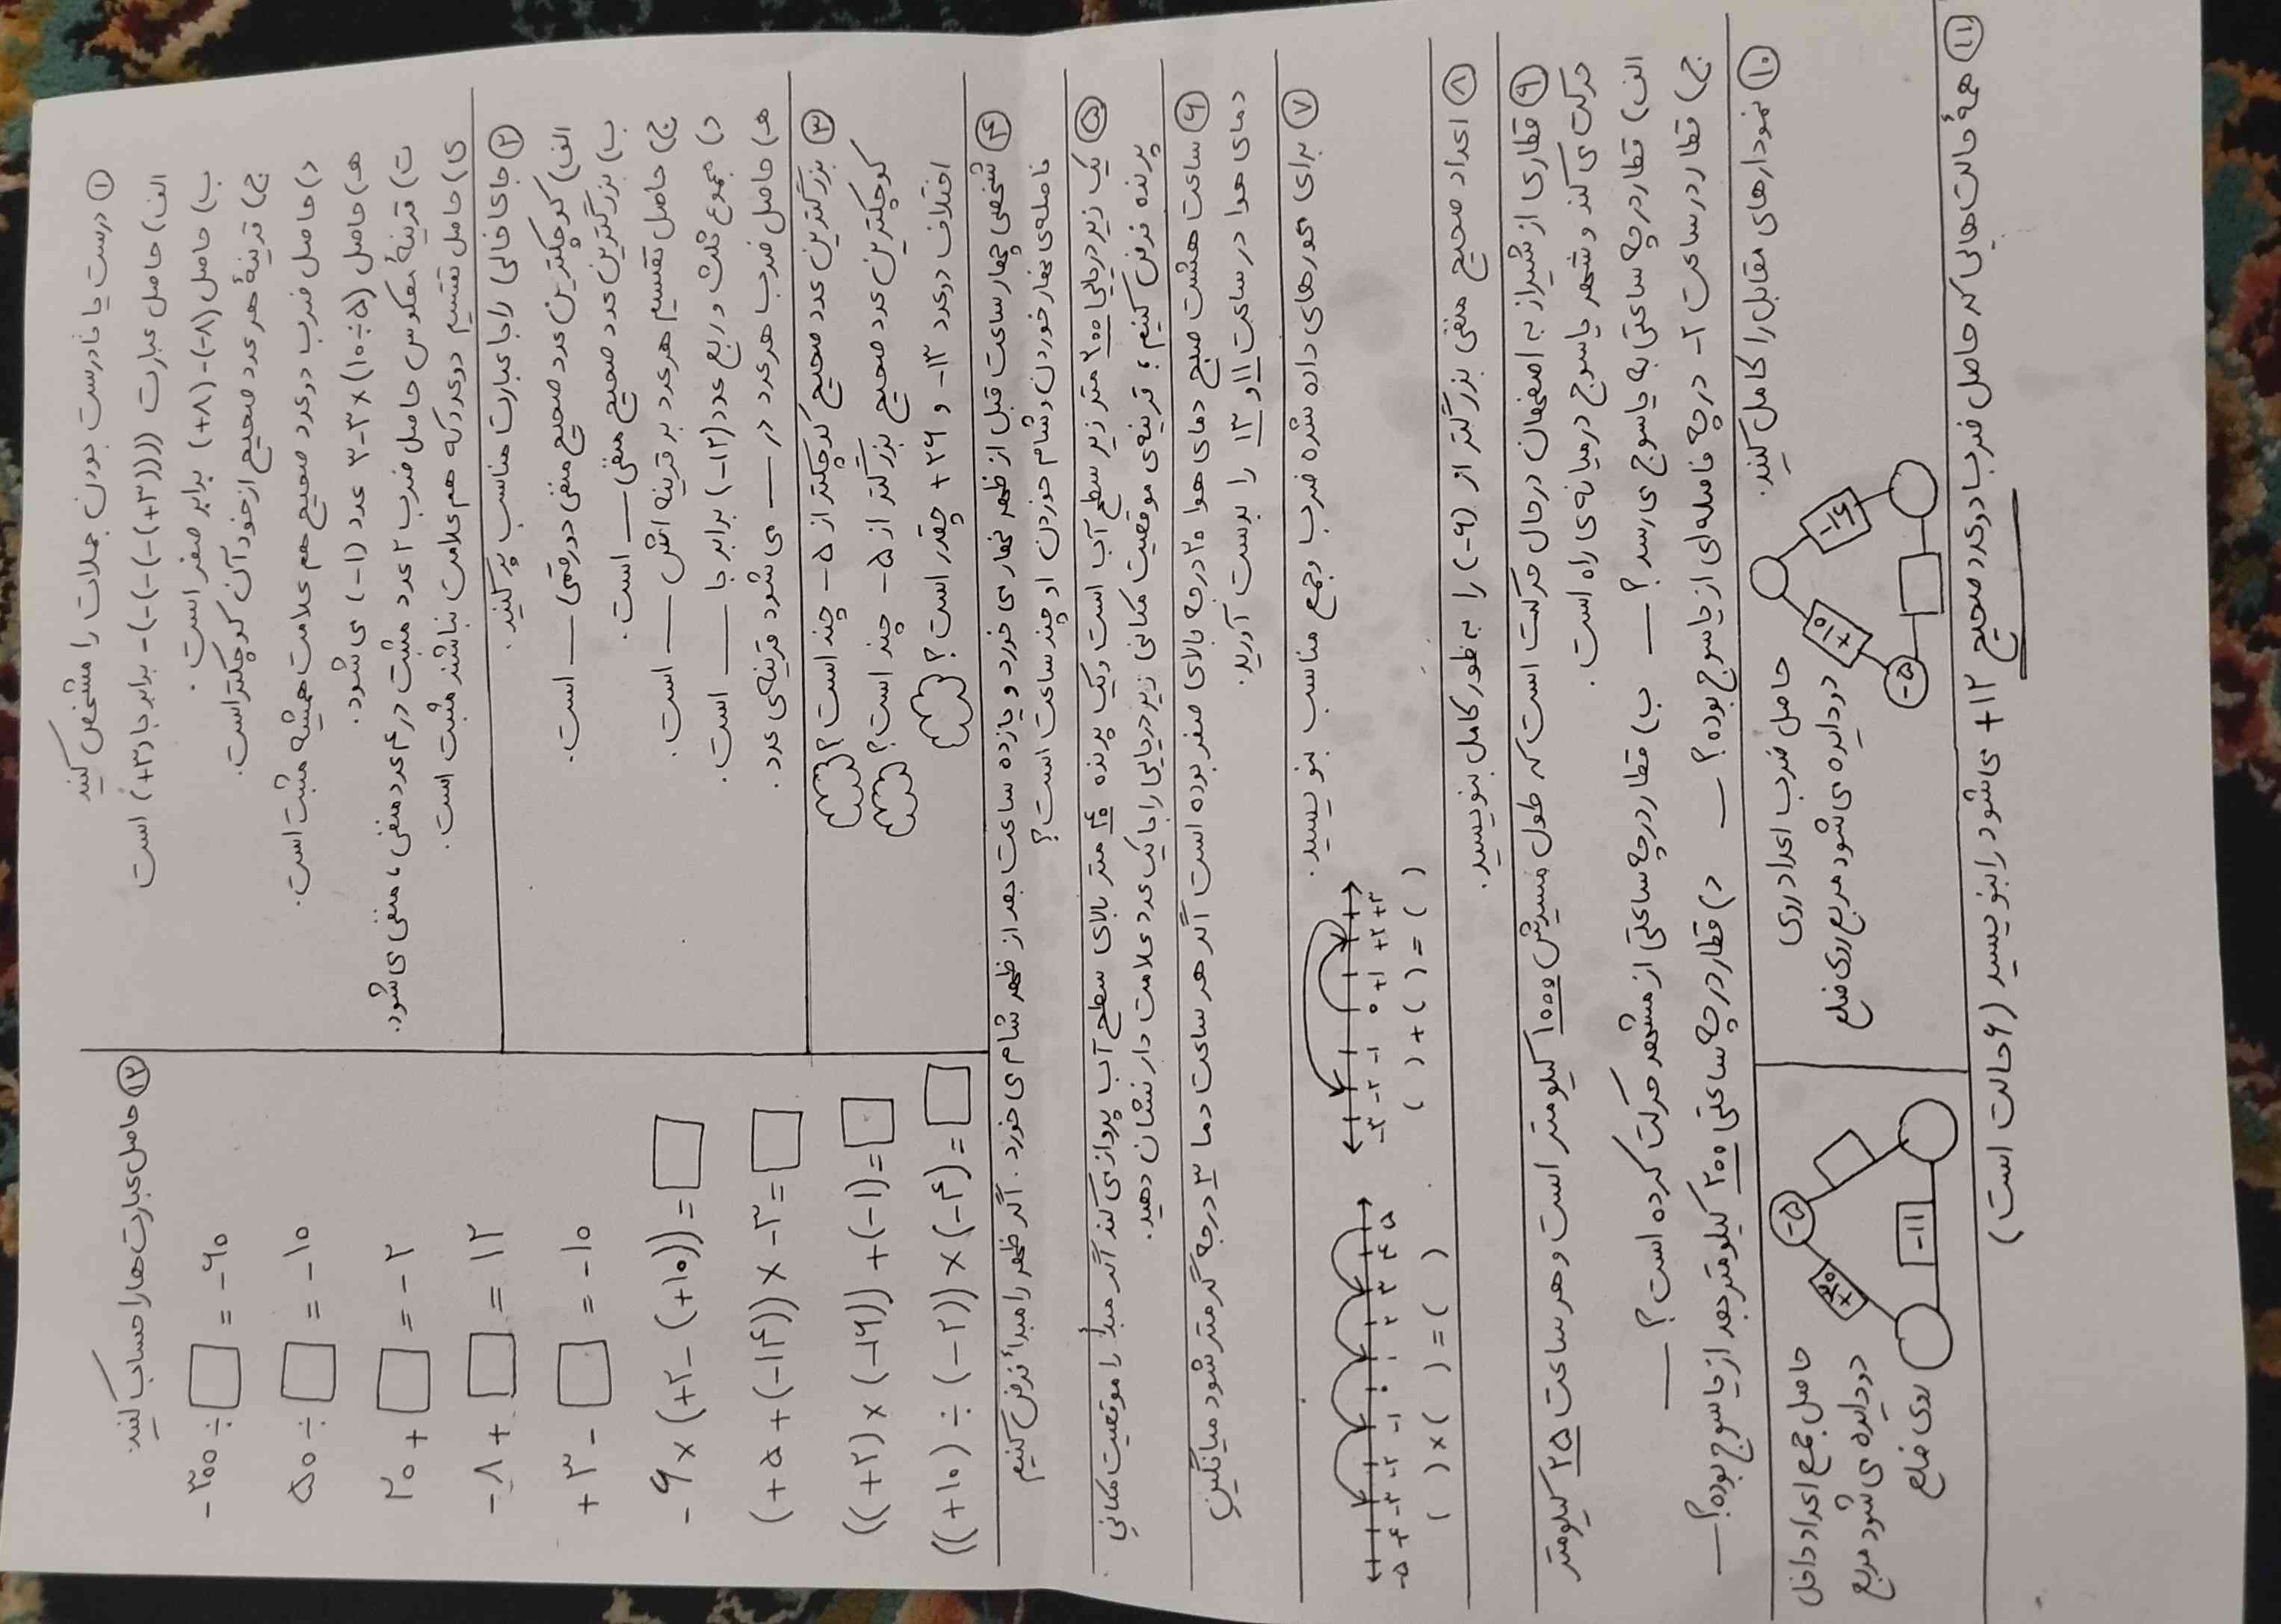 ① درست یا نادرست بودن جملات را مشخص کنید
الف) حاصل عبارت ((((+۳)-)-)-)- برابر با (+۳) است
ب) حاصل (-۸)-(+۸) برابر صفر است.
ج) قرینهٔ هر عدد صحیح از خود آن کوچکتر است.
د) حاصل ضرب دو عدد صحیح هم علامت همیشه مثبت است.
ه) حاصل (۱۰÷۵)×۳-۳ عدد (-۱) می شود.
ت) قرینهٔ معکوس حاصل ضرب ۲ عدد مثبت در ۴ عدد منفی، منفی می شود.
ی) حاصل تقسیم دو عدد که هم علامت نباشند مثبت است.
② جای خالی را با عبارت مناسب پر کنید.
الف) کوچکترین عدد صحیح منفی دو رقمی — است.
ب) بزرگترین عدد صحیح منفی — است.
ج) حاصل تقسیم هر عدد بر قرینه اش — است.
د) مجموع ثلث و ربع عدد (-۱۲) برابر با — است.
ه) حاصل ضرب هر عدد در — می شود قرینه ی عدد.
③ بزرگترین عدد صحیح کوچکتر از -۵ چند است؟
کوچکترین عدد صحیح بزرگتر از -۵ چند است؟
اختلاف دو عدد -۱۳ و +۲۶ چقدر است؟
⑫ حاصل عبارت ها را حساب کنید
-۳۰۰ ÷ □ = -۶۰
۵۰ ÷ □ = -۱۰
۲۰ + □ = -۲
-۸ + □ = ۱۲
+۳ - □ = -۱۰
-۶ × (+۲ - (+۱۰)) = □
(+۵ + (-۱۴)) × -۳ = □
((+۲) × (-۱۶)) + (-۱) = □
((+۱۰) ÷ (-۲)) × (-۴) = □
④ شخصی چهار ساعت قبل از ظهر نهار می خورد و یازده ساعت بعد از ظهر شام می خورد. اگر ظهر را مبدأ فرض کنیم
فاصله ی نهار خوردن و شام خوردن او چند ساعت است؟
⑤ یک زیردریایی ۳۰۰ متر زیر سطح آب است و یک پرنده ۴۵ متر بالای سطح آب پرواز می کند اگر مبدأ را موقعیت مکانی
پرنده فرض کنیم، قرینه ی موقعیت مکانی زیردریایی را با یک عدد علامت دار نشان دهید.
⑥ ساعت هشت صبح دمای هوا ۲۰ درجه بالای صفر بوده است اگر هر ساعت دما ۳ درجه گرمتر شود میانگین
دمای هوا در ساعت ۱۱ و ۱۳ را بدست آورید.
⑦ برای محورهای داده شده ضرب و جمع مناسب بنویسید.
-۳ -۲ -۱ ۰ +۱ +۲ +۳
( ) + ( ) = ( )
-۵ -۴ -۳ -۲ -۱ ۰ ۱ ۲ ۳ ۴ ۵
( ) × ( ) = ( )
⑧ اعداد صحیح منفی بزرگتر از (-۶) را به طور کامل بنویسید.
⑨ قطاری از شیراز به اصفهان در حال حرکت است که طول مسیرش ۱۰۰۰ کیلومتر است و هر ساعت ۲۵ کیلومتر
حرکت می کند و شهر یاسوج در میانه ی راه است.
الف) قطار در چه ساعتی به یاسوج می رسد؟ — ب) قطار در چه ساعتی از مشهد حرکت کرده است؟ —
ج) قطار در ساعت -۲ در چه فاصله ای از یاسوج بوده؟ — د) قطار در چه ساعتی ۲۰۰ کیلومتر بعد از یاسوج بوده؟ —
⑩ نمودارهای مقابل را کامل کنید.
حاصل ضرب اعداد روی
دو دایره می شود مربع روی ضلع
+۱۰
-۱۴
-۵
حاصل جمع اعداد داخل
دو دایره می شود مربع
روی ضلع
-۵
-۱۱
⑪ همهٔ حالت هایی که حاصل ضرب دو عدد صحیح +۱۲ می شود را بنویسید (۶ حالت است)